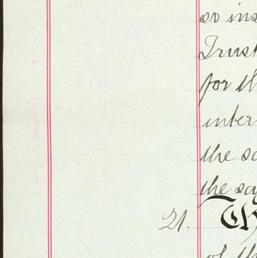 so ins
Trust
for th
inter
the sa
the say
21. Th
of th